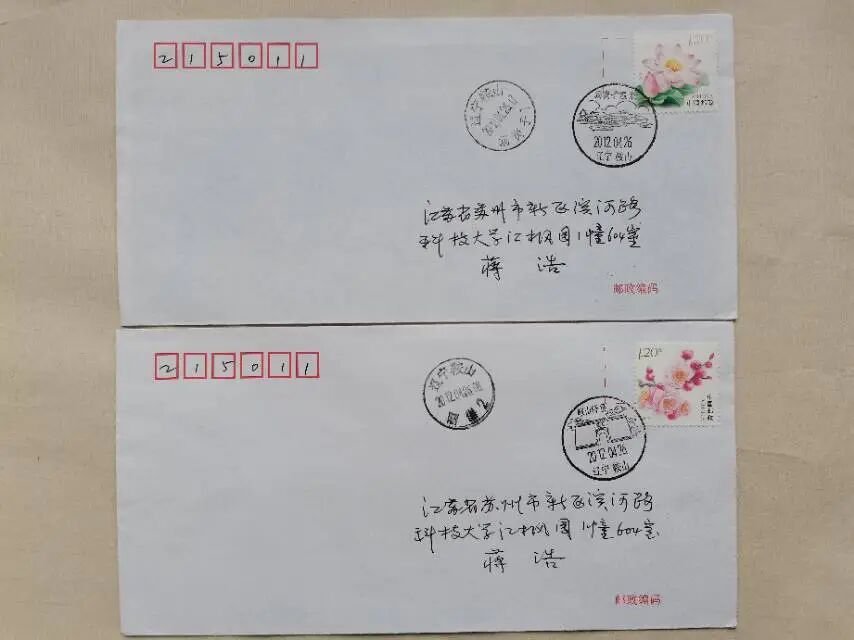 215011
1.20元
辽宁鞍山
2012.04.26
辽宁 鞍山
江苏省苏州市新区滨河路
科技大学江枫园1幢604室
蒋 浩
邮政编码
215011
1.20元
中国邮政
辽宁鞍山
2012.04.26
辽宁 鞍山
江苏省苏州市新区滨河路
科技大学江枫园1幢604室
蒋 浩
邮政编码